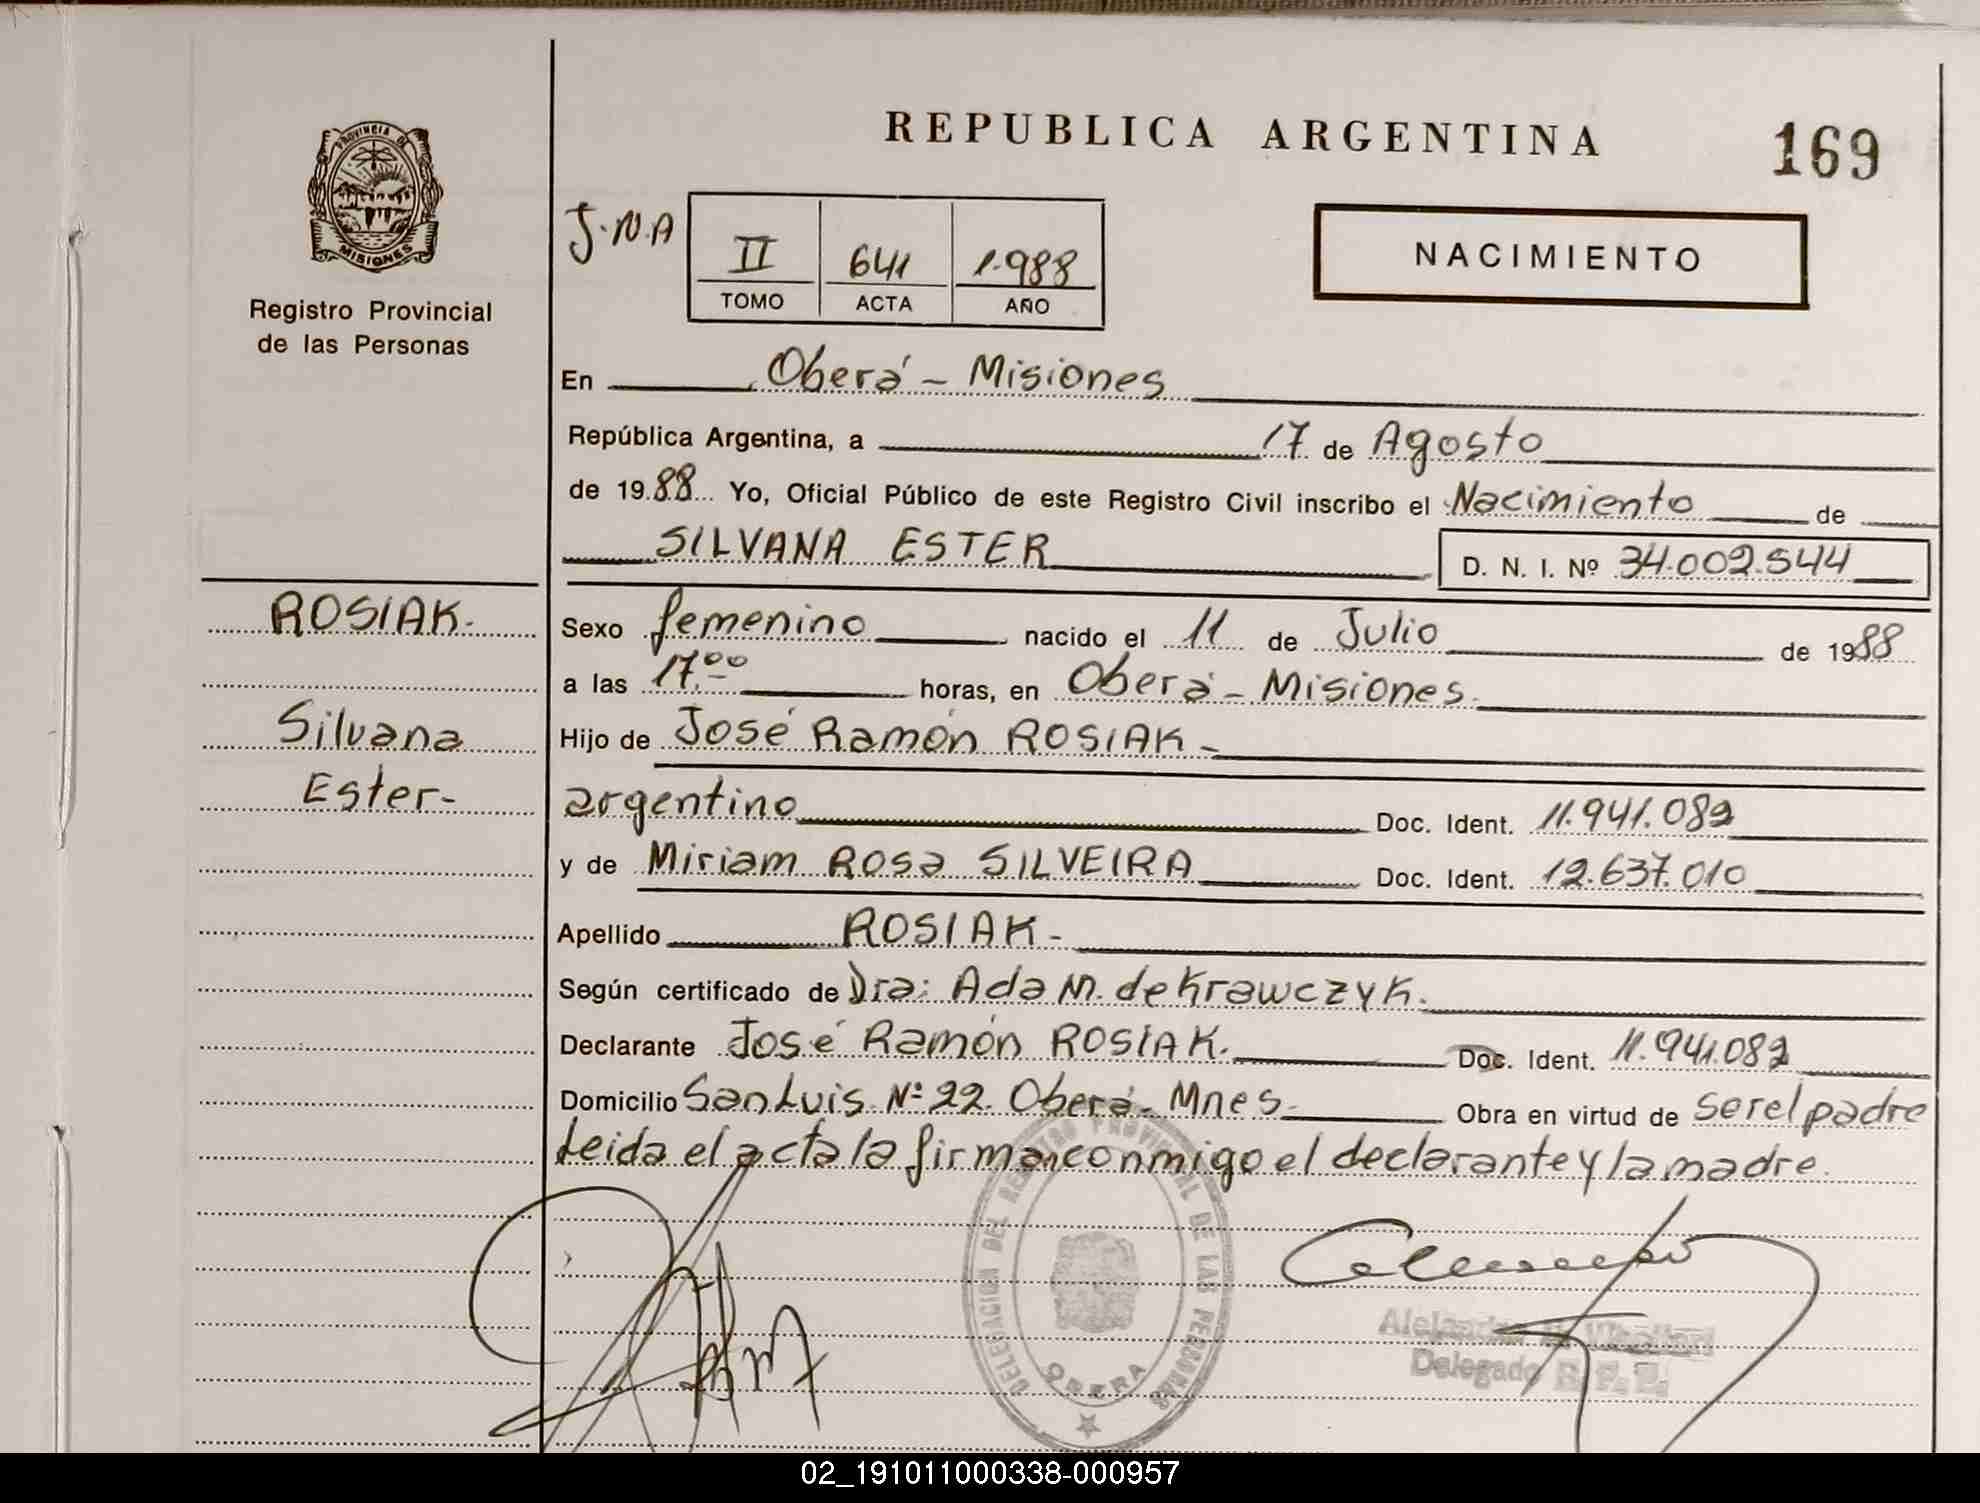 REPUBLICA ARGENTINA
169
PROVINCIA DE
MISIONES
Registro Provincial
de las Personas
J.N.A
II 641 1.988
TOMO ACTA AÑO
NACIMIENTO
En Oberá - Misiones
República Argentina, a 17 de Agosto
de 1988 Yo, Oficial Público de este Registro Civil inscribo el Nacimiento de
SILVANA ESTER D. N. I. Nº 34.002.544
ROSIAK.
Silvana
Ester-
Sexo femenino nacido el 11 de Julio de 1988
a las 17.00 horas, en Oberá - Misiones.
Hijo de José Ramón ROSIAK -
argentino Doc. Ident. 11.941.082
y de Miriam Rosa SILVEIRA Doc. Ident. 12.637.010
Apellido ROSIAK -
Según certificado de Dra: Ada M. de Krawczyk.
Declarante José Ramón ROSIAK. Doc. Ident. 11.941.082
Domicilio San Luis Nº 22. Oberá - Mnes. Obra en virtud de ser el padre
Leida el acta la firman conmigo el declarante y la madre.
DELEGACION DEL REGISTRO PROVINCIAL DE LAS PERSONAS
OBERA
Delegado R. P. P.
02_191011000338-000957